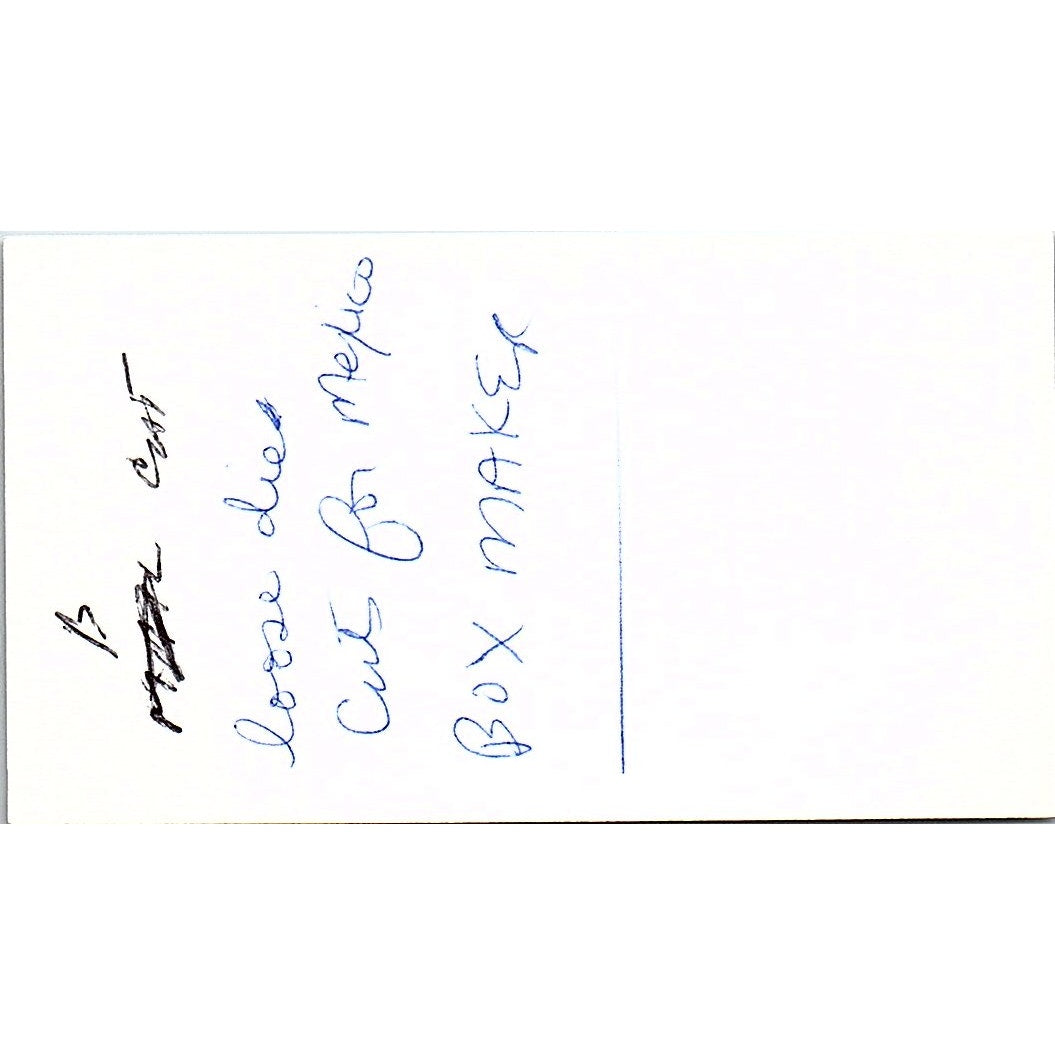 B
Cost
loose dies
Cuts for Mexico
BOX MAKER